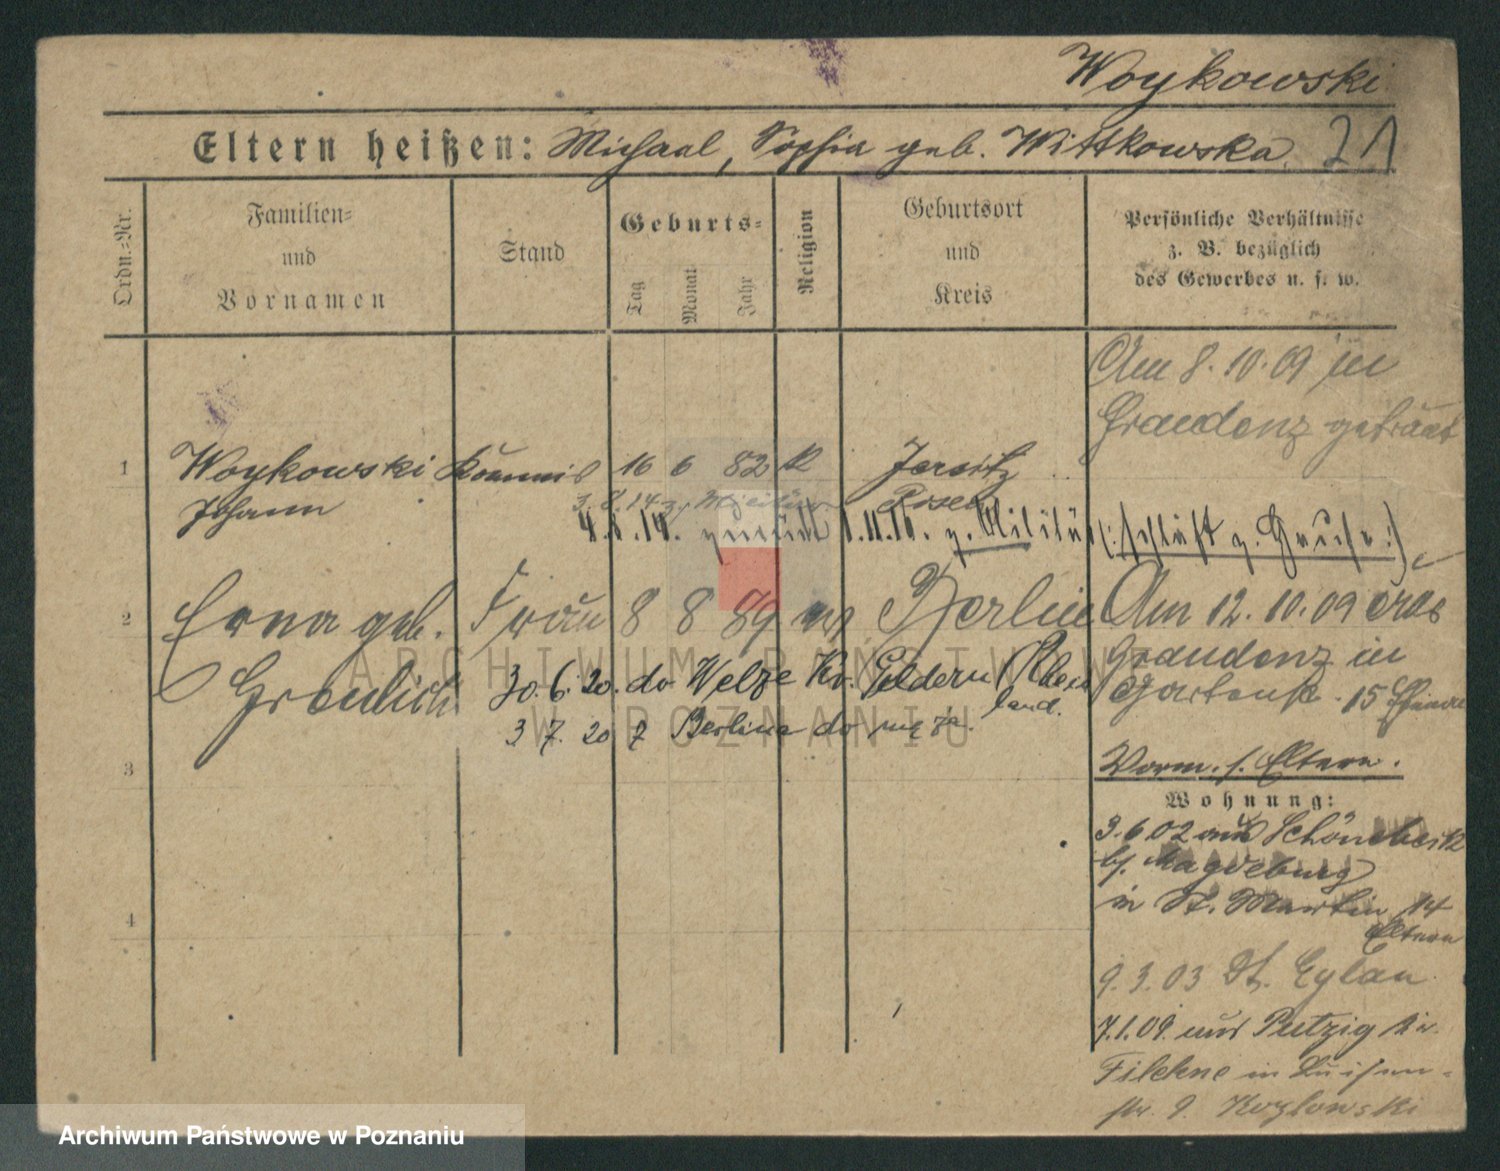 Woykowski
Eltern heißen: Michael, Sophia geb. Wittkowska. 21
Ordn.=Nr.
Familien=
und
Vornamen
Stand
Geburts=
Tag
Monat
Jahr
Religion
Geburtsort
und
Kreis
Persönliche Verhältnisse
z. B. bezüglich
des Gewerbes u. s. w.
Am 8.10.09 in
Graudenz getraut
1 Woykowski Kommis 16 6 82 K Jersitz
Johann
3.8.14 z. Posen
4.8.14. zurück 1.11.16. z. Militär (: schläft z. Hause :)
2 Erna geb. Frau 8 8 89 Berlin
Am 12.10.09 aus
Graudenz in
Gartenstr. 15
30.6.20. do Welze Kr. Geldern Rhein
land.
3 7. 20 z Berlina do
3
Vorm. s. Eltern.
Wohnung:
3.6 02 aus Schönebeck
b/ Magdeburg
in St. Martin 14
Eltern
4
9.3.03 Dt. Eylau
7.1.09. aus Putzig Kr.
Filehne in Luisen-
str. 9. Kozlowski
ARCHIWUM PAŃSTWOWE
W POZNANIU
Archiwum Państwowe w Poznaniu